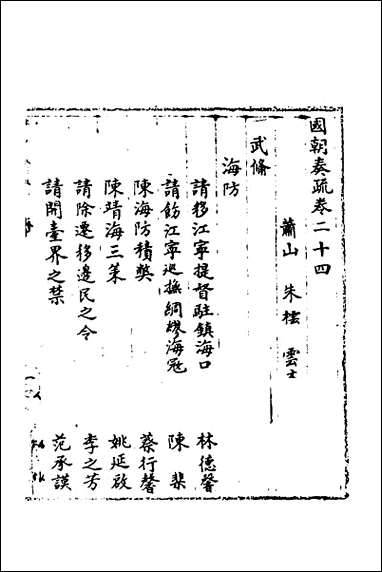 國朝奏疏卷二十四
蕭山 朱橒 雲士
武備
海防
請移江寧提督駐鎮海口 林德馨
請飭江寧巡撫綢繆海冦 陳棐
陳海防積獘 蔡行馨
陳靖海三策 姚延啟
請除遷移邊民之令 李之芳
請開臺界之禁 范承謨